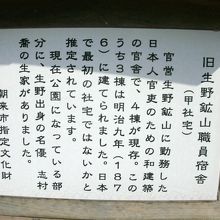 旧生野鉱山職員宿舎
(甲社宅)
官営生野鉱山に勤務した
日本人官吏のための和建築
の官舎で、4棟が現存。この
うち3棟は明治九年(187
6)に建てられました。日本
で最初の社宅ではないかと
推定されています。
現在公園になっている部
分に、生野出身の名優、志村
喬の生家がありました。
朝来市指定文化財